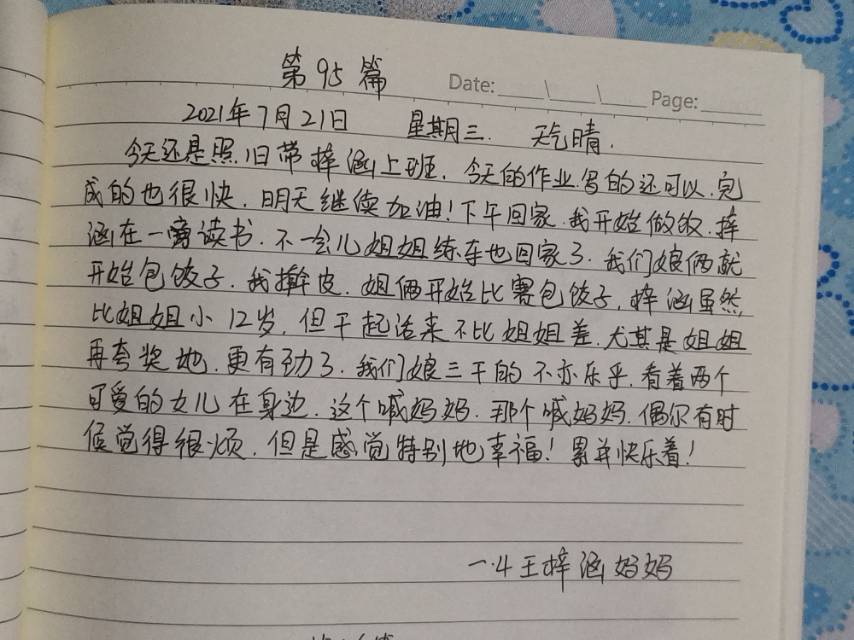 第95篇
Date: \ \ Page:
2021年7月21日 星期三. 天气晴.
今天还是照旧带梓涵上班. 今天的作业写的还可以, 完
成的也很快. 明天继续加油! 下午回家. 我开始做饭. 梓
涵在一旁读书. 不一会儿姐姐练车也回家了. 我们娘俩就
开始包饺子. 我擀皮. 姐俩开始比赛包饺子, 梓涵虽然
比姐姐小12岁, 但干起活来不比姐姐差. 尤其是姐姐
再夸奖她, 更有劲了. 我们娘三干的不亦乐乎, 看着两个
可爱的女儿在身边. 这个喊妈妈. 那个喊妈妈. 偶尔有时
候觉得很烦. 但是感觉特别地幸福! 累并快乐着!
一.4 王梓涵妈妈